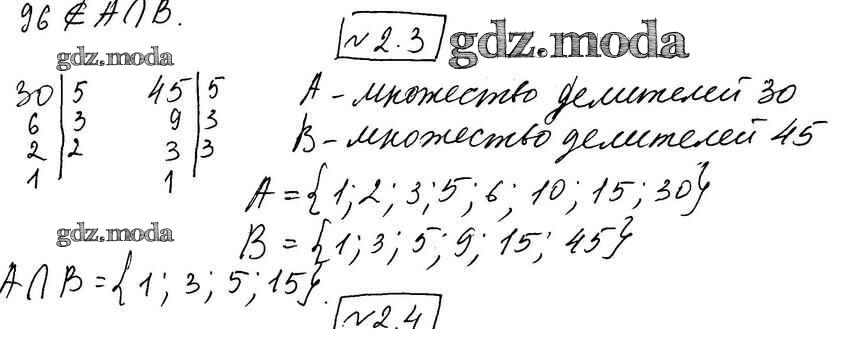 96 ∉ A∩B.
№2.3
gdz.moda
gdz.moda
30 | 5 45 | 5
6 | 3 9 | 3
2 | 2 3 | 3
1 1
A - множество делителей 30
B - множество делителей 45
A = {1; 2; 3; 5; 6; 10; 15; 30}
gdz.moda
B = {1; 3; 5; 9; 15; 45}
A∩B = {1; 3; 5; 15}.
№2.4